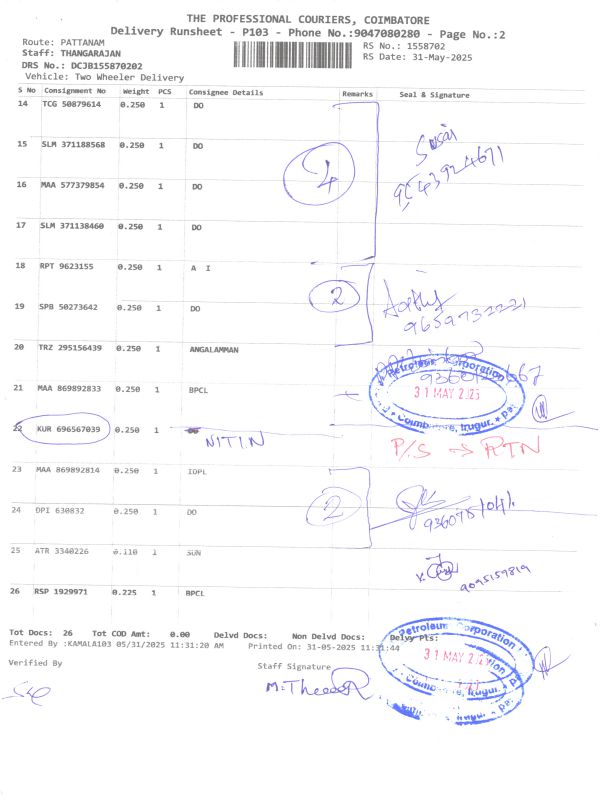 THE PROFESSIONAL COURIERS, COIMBATORE
Delivery Runsheet - P103 - Phone No.:9047080280 - Page No.:2
Route: PATTANAM
RS No.: 1558702
Staff: THANGARAJAN
RS Date: 31-May-2025
DRS No.: DCJB155870202
Vehicle: Two Wheeler Delivery
S No Consignment No Weight PCS Consignee Details Remarks Seal & Signature
14 TCG 50879614 0.250 1 DO
15 SLM 371188568 0.250 1 DO
4
16 MAA 577379854 0.250 1 DO
17 SLM 371138460 0.250 1 DO
18 RPT 9623155 0.250 1 A I
2
19 SPB 50273642 0.250 1 DO
9659732221
20 TRZ 295156439 0.250 1 ANGALAMMAN
Petroleum Corporation
21 MAA 869892833 0.250 1 BPCL
31 MAY 2025
Irugur.
22 KUR 696567039 0.250 1
NITIN
P/S → RTN
23 MAA 869892814 0.250 1 IOPL
24 DPI 630832 0.250 1 DO
2
25 ATR 3340226 0.110 1 SUN
9095159819
26 RSP 1929971 0.225 1 BPCL
Tot Docs: 26 Tot COD Amt: 0.00 Delvd Docs: Non Delvd Docs: Delvy Pts:
Petroleum Corporation
Entered By :KAMALA103 05/31/2025 11:31:20 AM Printed On: 31-05-2025 11:31:44
31 MAY
Verified By
Staff Signature
Irugur.